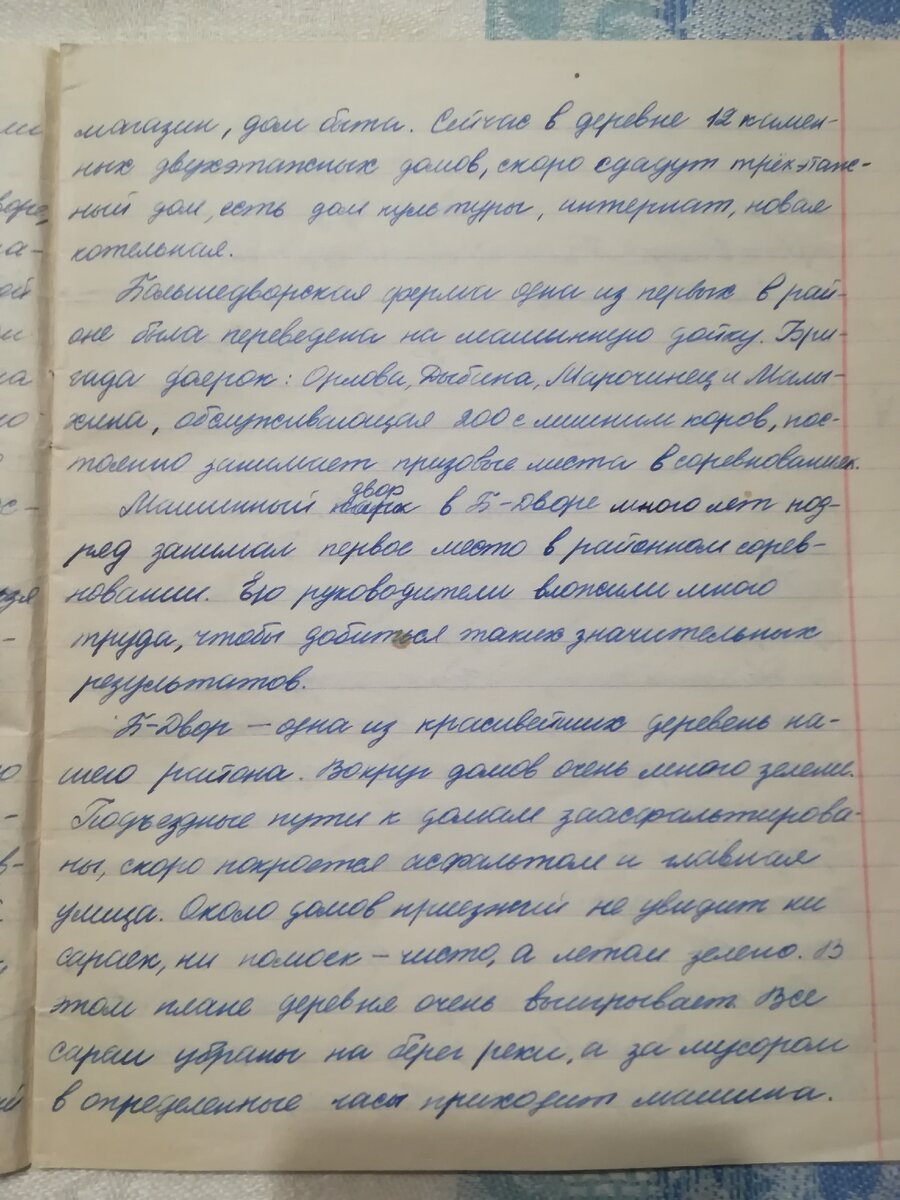 магазин, дом быта. Сейчас в деревне 12 камен-
ных двухэтажных домов, скоро сдадут трёхэтаж-
ный дом, есть дом культуры, интернат, новая
котельная.
Большедворская ферма одна из первых в рай-
оне была переведена на машинную дойку. Бри-
гада доярок: Орлова, Дыбина, Марочинец и Малы-
хина, обслуживающая 200 с лишним коров, пос-
тоянно занимает призовые места в соревнованиях.
двор
Машинный парк в Б-Дворе много лет под-
ряд занимал первое место в районном сорев-
новании. Его руководители вложили много
труда, чтобы добиться таких значительных
результатов.
Б-Двор – одна из красивейших деревень на-
шего района. Вокруг домов очень много зелени.
Подъездные пути к домам заасфальтирова-
ны, скоро покроется асфальтом и главная
улица. Около домов приезжий не увидит ни
сараек, ни помоек – чисто, а летом зелено. В
этом плане деревня очень выигрывает. Все
сараи убраны на берег реки, а за мусором
в определенные часы приходит машина.